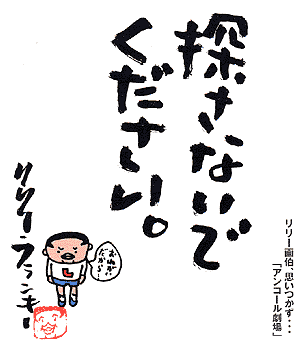 探さないで
ください。
お願い
だから
L
リリー・フランキー
リリー画伯、思いつかず・・・
「アンコール劇場」